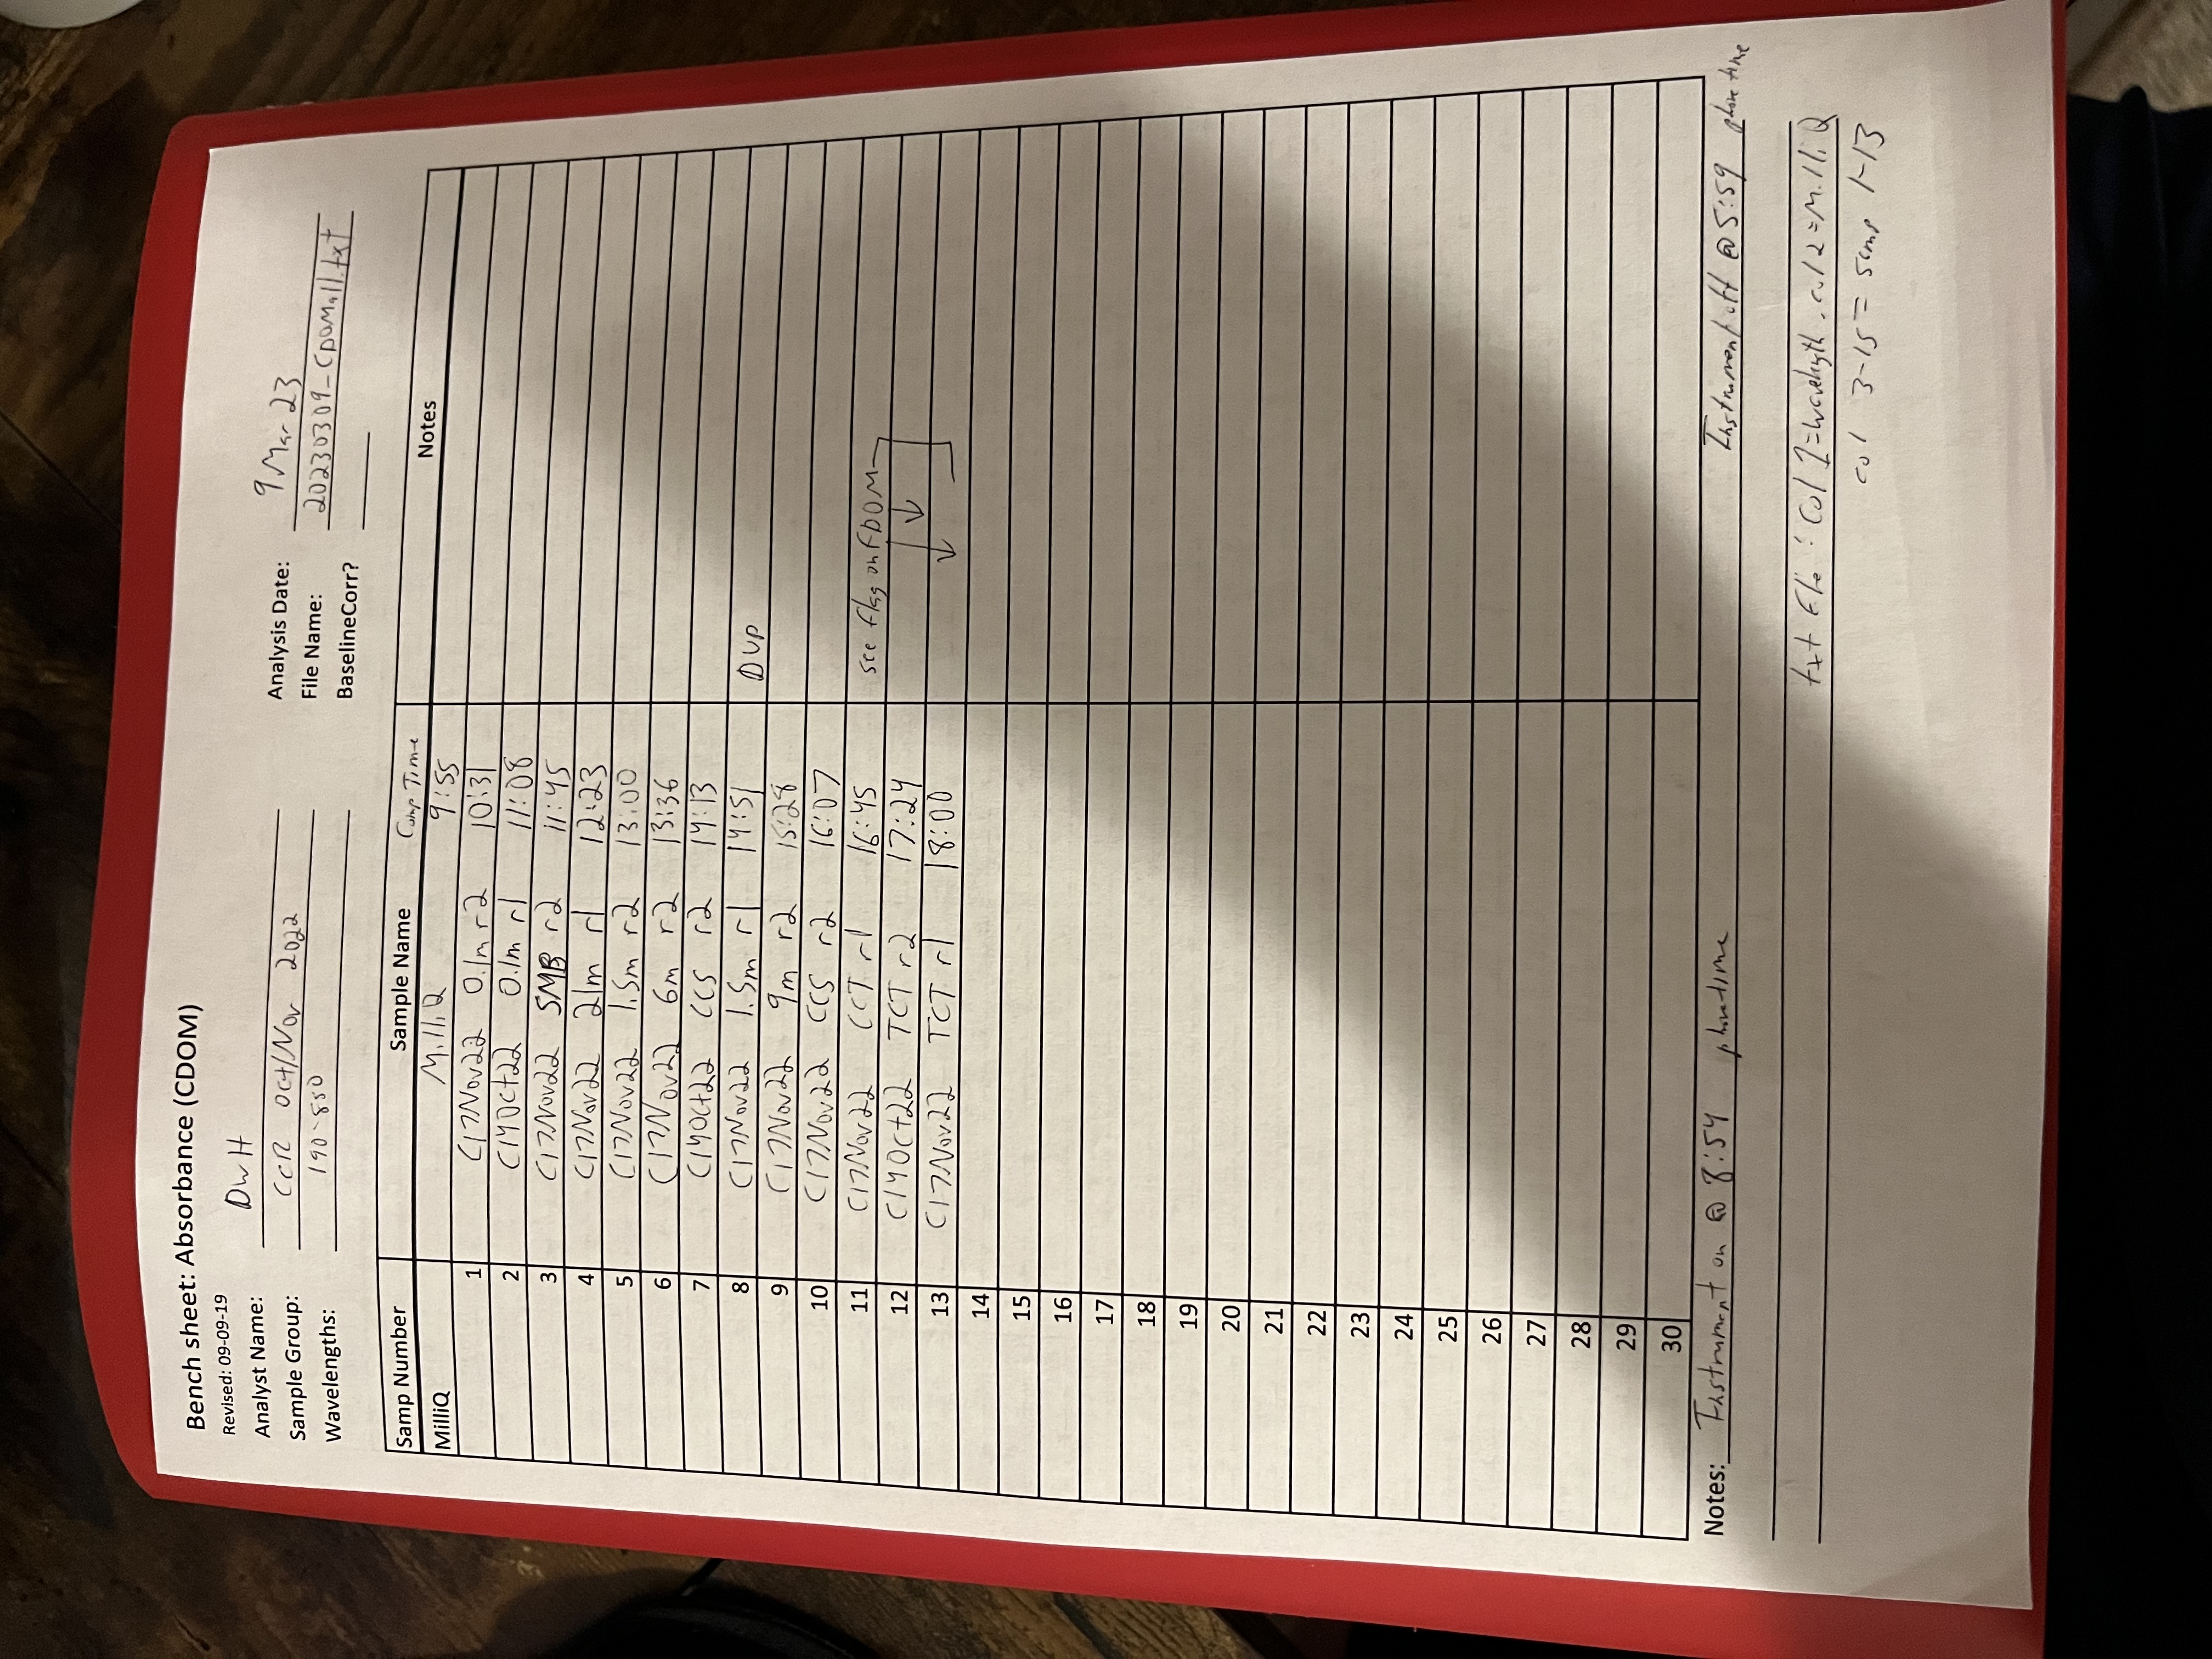 Bench sheet: Absorbance (CDOM)
Revised: 09-09-19
Analyst Name: DWH
Analysis Date: 9 Mar 23
Sample Group: CCR Oct/Nov 2022
File Name: 20230309_CDOMall.txt
Wavelengths: 190-850
BaselineCorr?
Samp Number Sample Name Comp Time Notes
MilliQ MilliQ 9:55
1 C17Nov22 0.1m r2 10:31
2 C14Oct22 0.1m r1 11:08
3 C17Nov22 SMB r2 11:45
4 C17Nov22 21m r1 12:23
5 C17Nov22 1.5m r2 13:00
6 C17Nov22 6m r2 13:36
7 C14Oct22 CCS r2 14:13
8 C17Nov22 1.5m r1 14:51 DUP
9 C17Nov22 9m r2 15:28
10 C17Nov22 CCS r2 16:07
11 C17Nov22 CCT r1 16:45 see flag on FDOM
12 C14Oct22 TCT r2 17:24
13 C17Nov22 TCT r1 18:00
14
15
16
17
18
19
20
21
22
23
24
25
26
27
28
29
30
Notes: Instrument on @ 8:54 phone time Instrument off @ 5:59 phone time
txt File: Col 1=wavelength, col 2=MilliQ
col 3-15 = samp 1-13